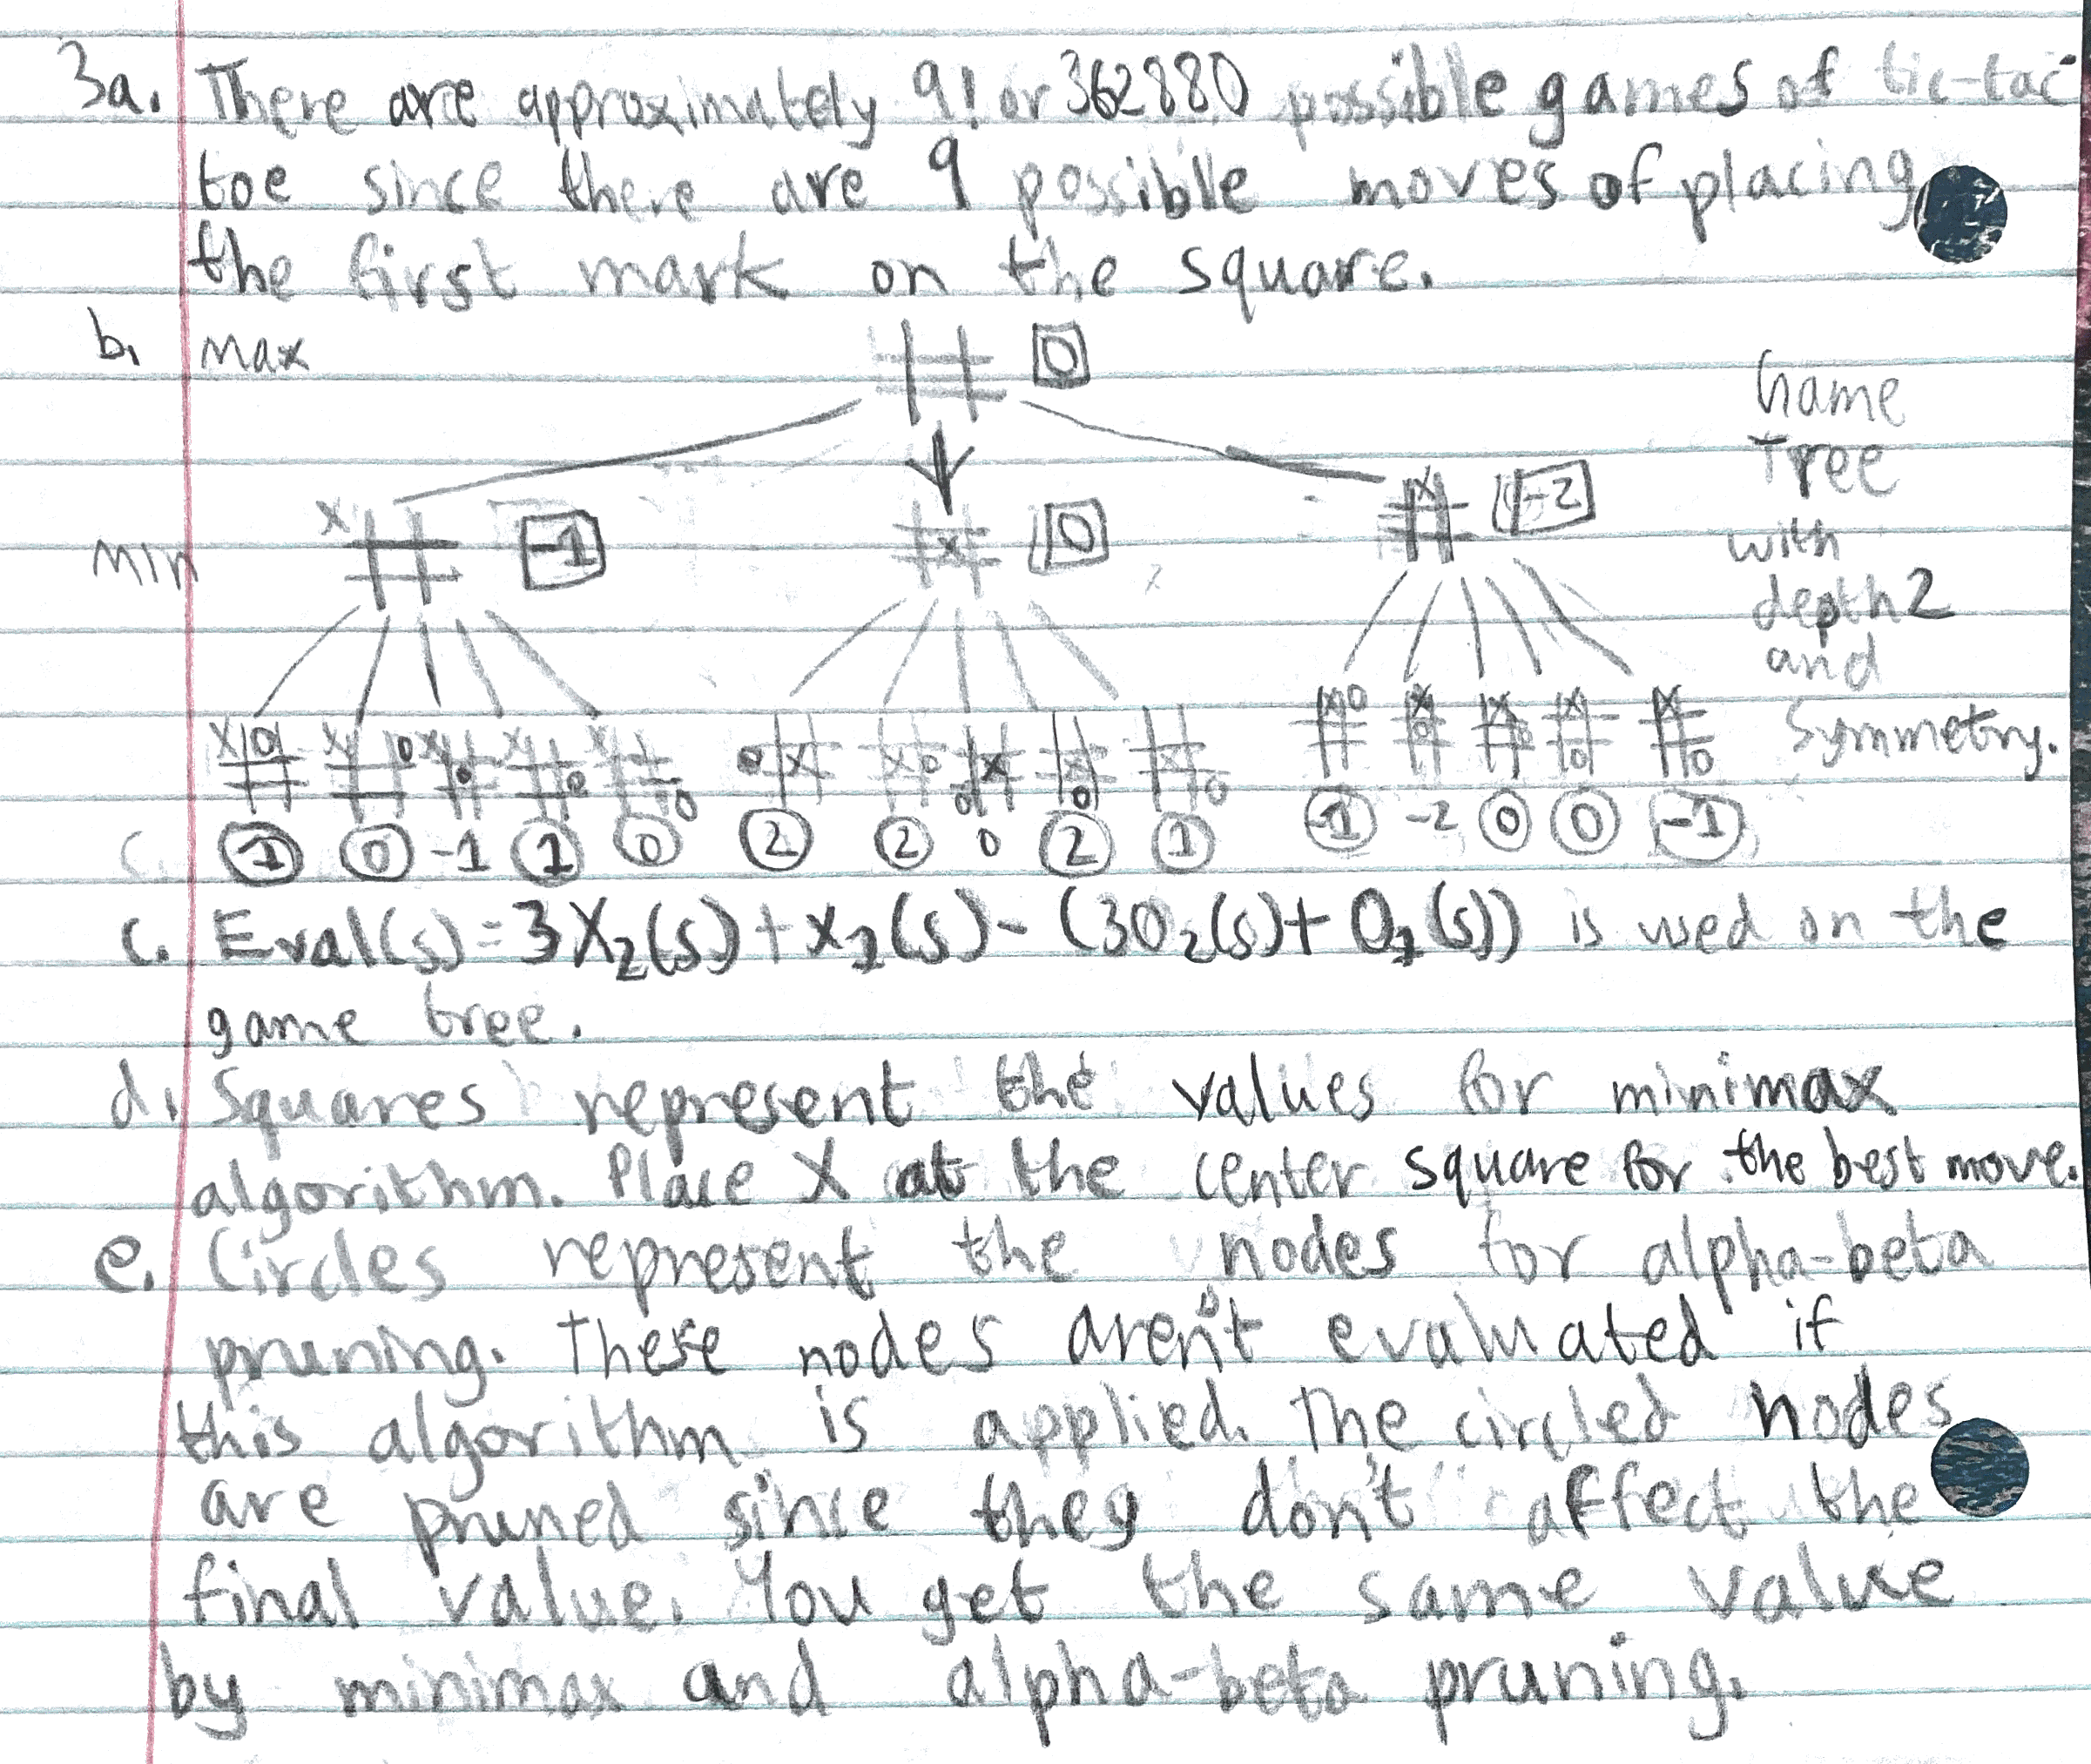 3a. There are approximately 9! or 362880 possible games of tic-tac
toe since there are 9 possible moves of placing
the first mark on the square.
b. Max 0
Game
Tree
X -2
X -1 X 0
Min
with
depth 2
and
Symmetry.
X O X O X O X O X O O X X O X O X O X O X O X O X O X O X O
1 0 -1 1 0 2 2 0 2 1 -1 -2 0 0 -1
c.
c. Eval(s) = 3X₂(s) + X₁(s) - (3O₂(s) + O₁(s)) is used on the
game tree.
d. Squares represent the values for minimax
algorithm. Place X at the center square for the best move.
e. Circles represent the nodes for alpha-beta
pruning. These nodes aren't evaluated if
this algorithm is applied. The circled nodes
are pruned since they don't affect the
final value. You get the same value
by minimax and alpha-beta pruning.